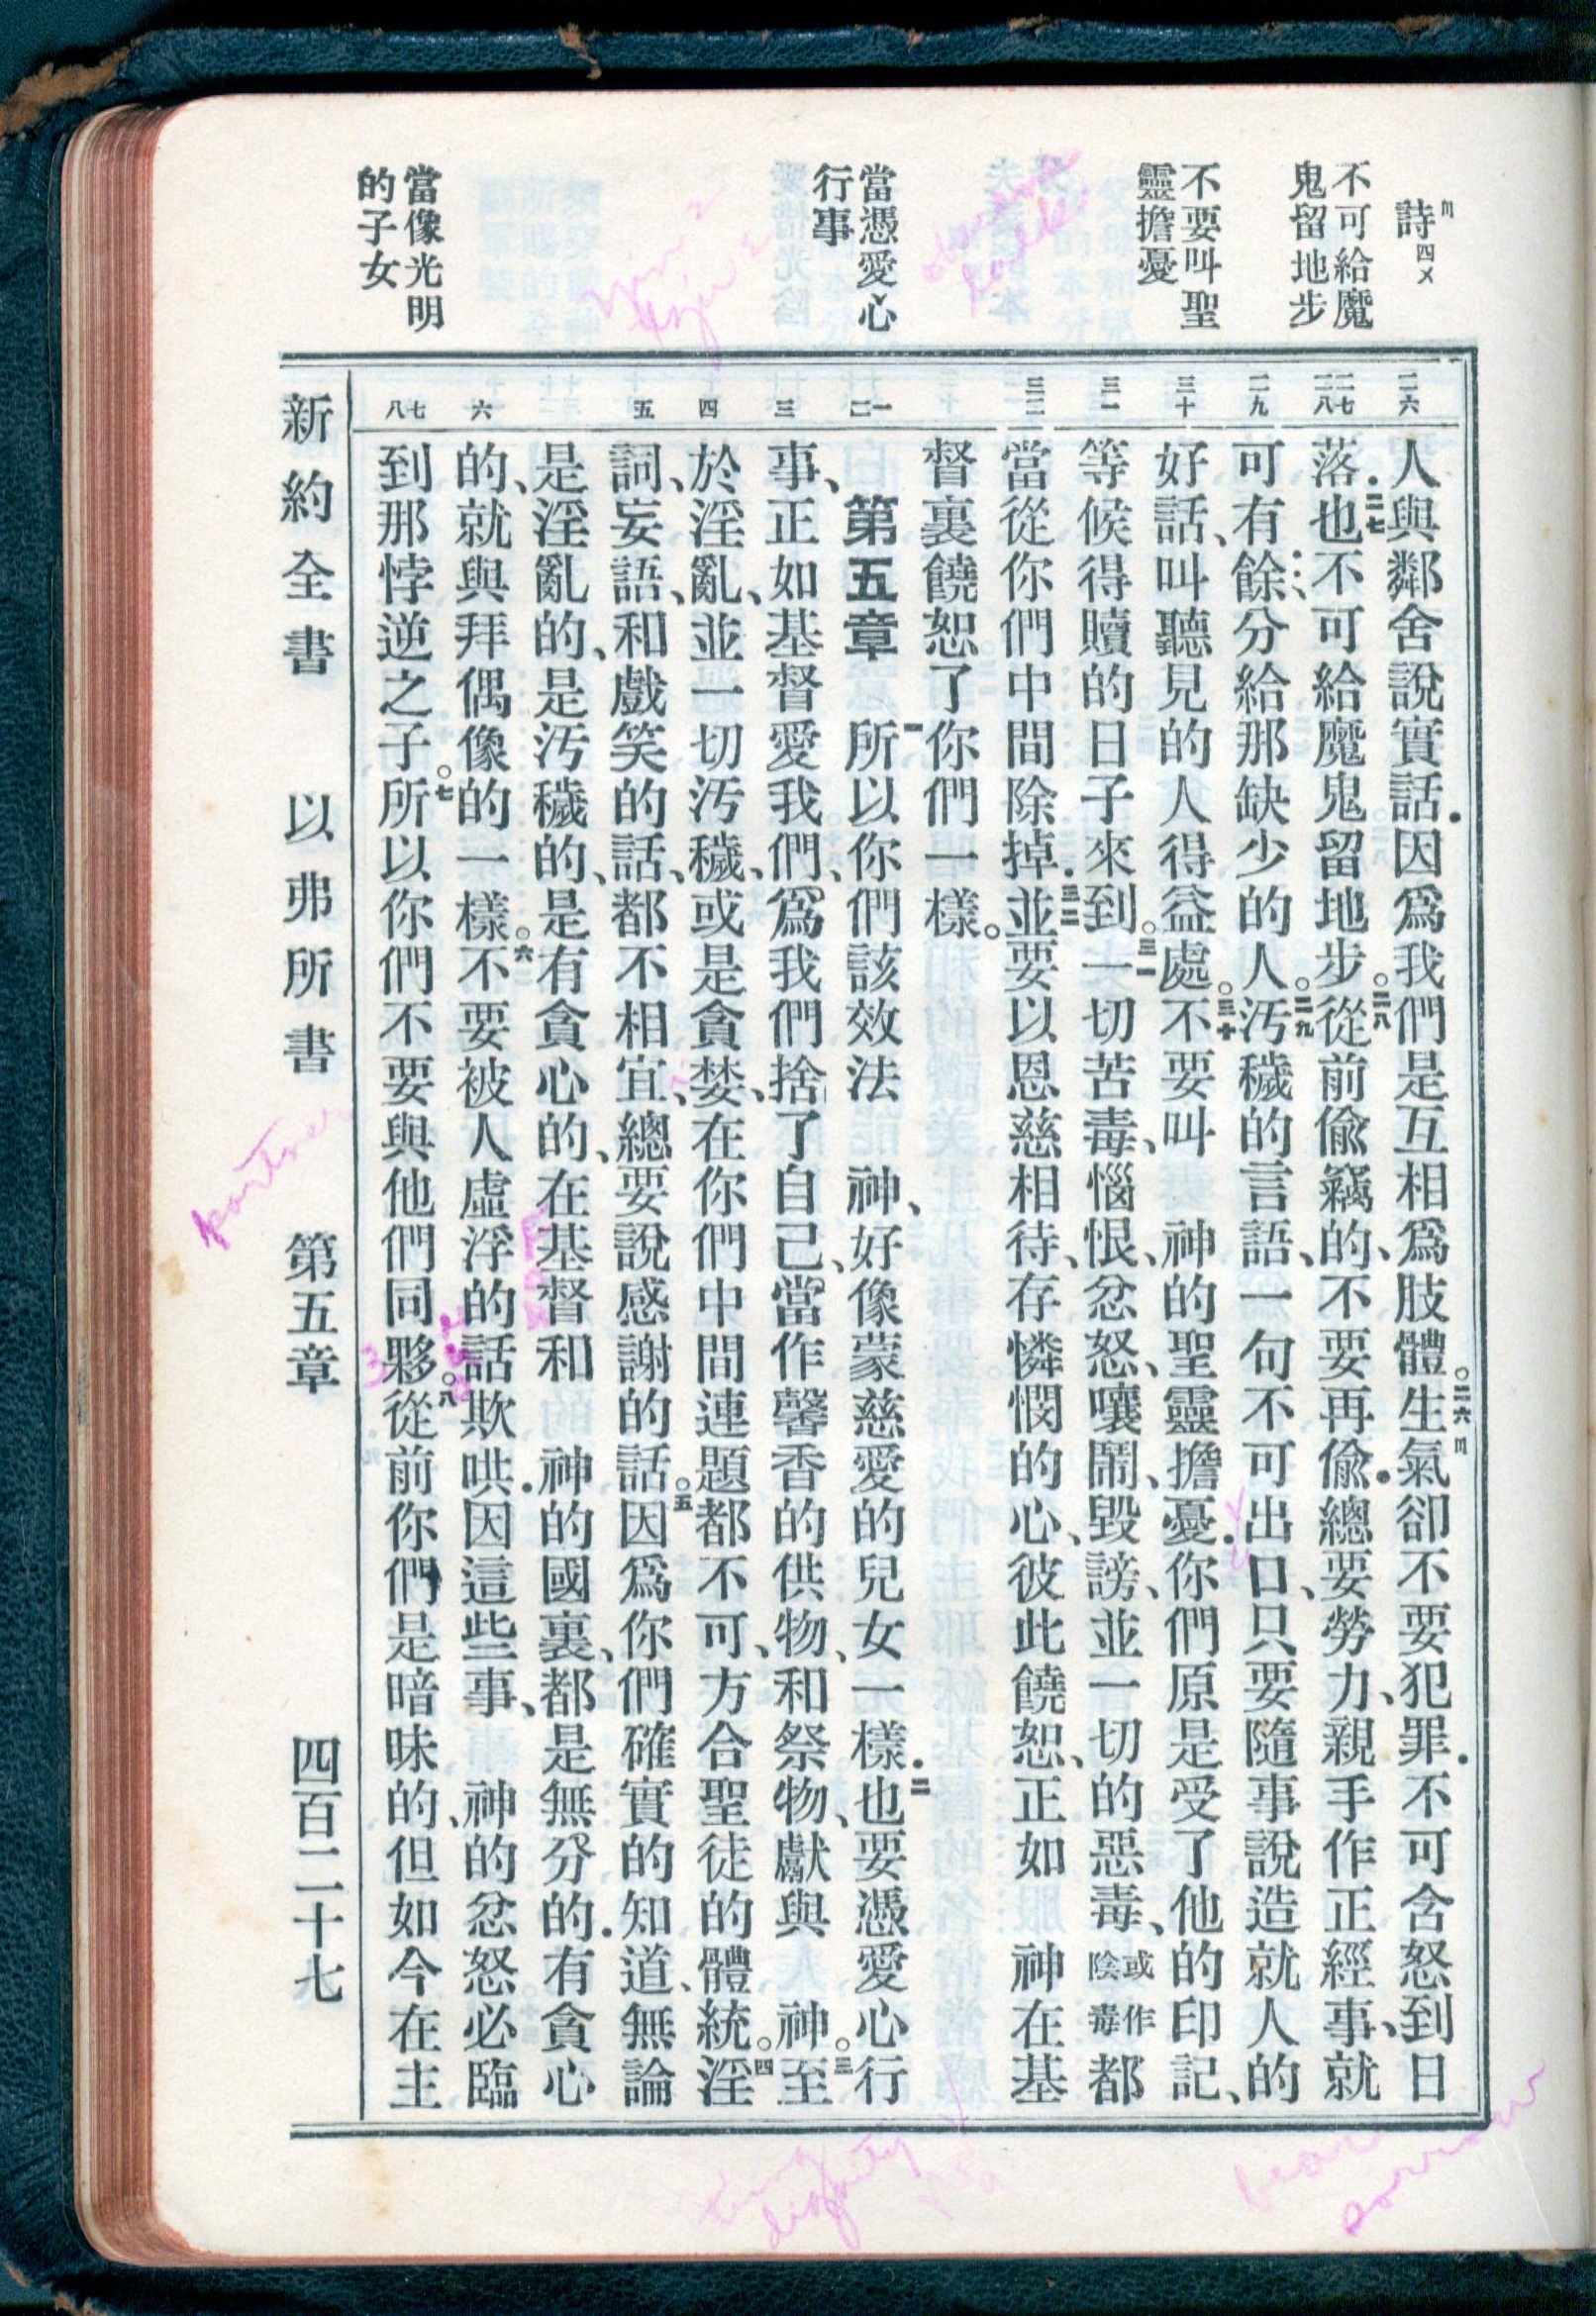 詩四 乂
不可給魔
鬼留地步
不要叫聖
靈擔憂
當憑愛心
行事
當像光明
的子女
二六
二七
二八
二九
三十
三一
三二
一
二
三
四
五
六
七
八
人與鄰舍說實話．因爲我們是互相爲肢體。二六生氣卻不要犯罪．不可含怒到日
落．二七也不可給魔鬼留地步。二八從前偸竊的、不要再偸．總要勞力、親手作正經事、就
可有餘．分給那缺少的人。二九汚穢的言語、一句不可出口、只要隨事說造就人的
好話、叫聽見的人得益處。三十不要叫 神的聖靈擔憂．你們原是受了他的印記、
等候得贖的日子來到。三一一切苦毒、惱恨、忿怒、嚷鬧、毀謗、並一切的惡毒、或作陰毒都
當從你們中間除掉．三二並要以恩慈相待、存憐憫的心、彼此饒恕、正如 神在基
督裏饒恕了你們一樣。
第五章 一所以你們該效法 神、好像蒙慈愛的兒女一樣．二也要憑愛心行
事、正如基督愛我們、爲我們捨了自己、當作馨香的供物、和祭物、獻與 神。三至
於淫亂、並一切汚穢、或是貪婪、在你們中間連題都不可、方合聖徒的體統。四淫
詞、妄語、和戲笑的話、都不相宜、總要說感謝的話。五因爲你們確實的知道、無論
是淫亂的、是汚穢的、是有貪心的、在基督和 神的國裏、都是無分的．有貪心
的、就與拜偶像的一樣。六不要被人虛浮的話欺哄．因這些事、神的忿怒必臨
到那悖逆之子。七所以你們不要與他們同夥。八從前你們是暗昧的、但如今在主
新約全書 以弗所書 第五章 四百二十七
partner
bear
sorrow
dignity